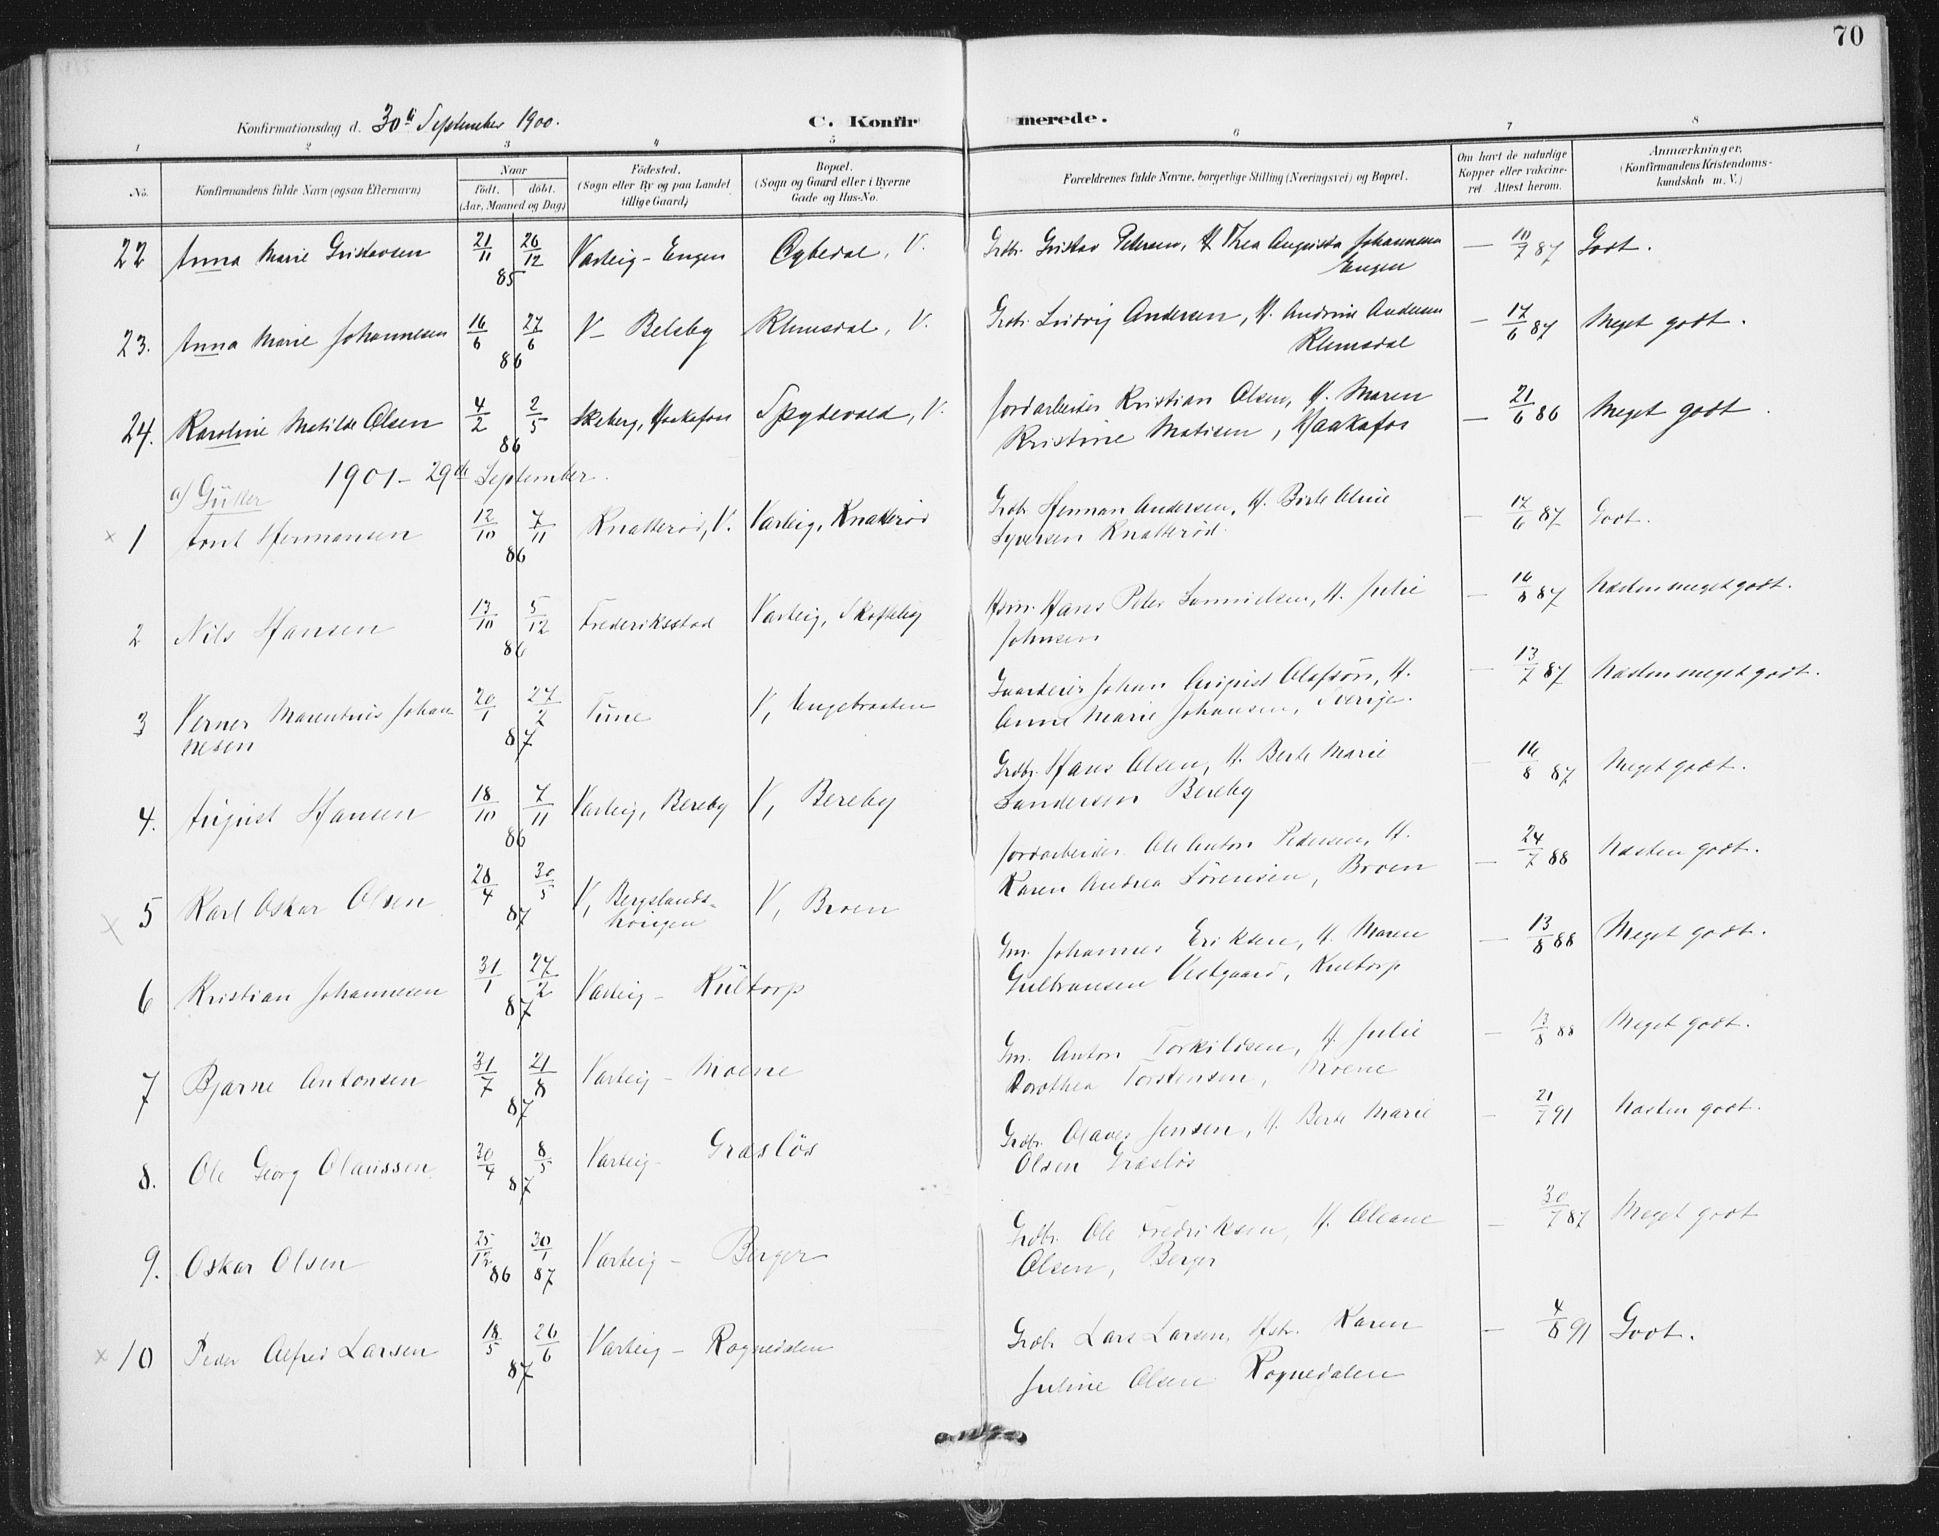 70
Konfirmationsdag d. 30te September 1900.
C. Konfirmerede.
1 2 3 4 5 6 7 8
No. Konfirmandens fulde Navn (ogsaa Efternavn) Naar født. døbt. (Aar, Maaned og Dag) Fødested. (Sogn eller By og paa Landet tillige Gaard) Bopæl. (Sogn og Gaard eller i Byerne Gade og Hus-No. Forældrenes fulde Navne, borgerlige Stilling (Næringsvei) og Bopæl. Om havt de naturlige Kopper eller vakcineret. Attest herom. Anmærkninger. (Konfirmandens Kristendomskundskab m. V.)
22 Anna Marie Gustavsen 21/11 26/12 85 Varteig - Engen V. Grdbr. Gustav Petersen, H. Thea Augusta Johannesen Engen — /7 87 Godt.
23. Anna Marie Johannesen 16/6 27/6 86 V - Belsby Klemsdal, V. Grdbr. Ludvig Andersen, H. Andrine Andersen Klemsdal — 17/6 87 Meget godt.
24. Karoline Matilde Olsen 4/2 2/5 86 Skeberg, Haakafos Spydevold, V. Jordarbeider Kristian Olsen, H. Maren
Kristine Matisen, Haakafos — 21/6 86 Meget godt.
1901 - 29de September.
a) Gutter
x 1 Hermansen 12/10 7/11 86 Knatterød, V. Varteig, Knatterød Grdb. Herman Andersen, H. Birte Oline
Syversen Knatterød. — 17/6 87 Godt.
2 Nils Hansen 13/10 5/12 86 Frederiksstad Varteig, Skofteby Hans Peter H. Julie
Johnsen — 16/8 87 Næsten meget godt.
3 Verner Marentius Johannesen 20/1 27/2 87 Tune V, Engebraaten Gaardeier Johan August Olafsön, H.
Anne Marie Johansen, Sverige. — 13/7 87 Næsten meget godt.
4. August Hansen 18/10 7/11 86 Varteig, Bereby V, Bereby Grdbr. Hans Olsen, H. Berte Marie
Sandersen Bereby — 16/8 87 Meget godt.
x 5 Karl Oskar Olsen 28/4 30/5 87 V, Bergslands- V, Broen Jordarbeider Ole Anton Pedersen, H.
Karen Andrea Sørensen, Broen — 24/7 88 Næsten godt.
6 Kristian Johannesen 31/1 27/2 87 Varteig - Kultorp Gm. Johannes Eriksen, H. Maren
Gulbransen Vestgaard, Kultorp — 13/8 88 Meget godt.
7 Bjarne Antonsen 31/7 21/8 87 Varteig - Moene Gm. Anton Torkildsen, H. Julie
Dorothea Torstensen, Moene — 13/8 88 Meget godt.
8. Ole Georg Olaussen 30/4 8/5 87 Varteig - Græsløs Grdbr. Olaves Jensen, H. Berte Marie
Olsen Græsløs — 21/7 91 Næsten godt.
9. Oskar Olsen 25/12 86 30/1 87 Varteig - Berger Grdbr. Ole Fredriksen, H. Oleane
Olsen, Berger — 30/7 87 Meget godt
x 10 Peder Alfred Larsen 18/5 26/6 87 Varteig - Rognedalen Grdbr Lars Larsen, Hstr. Karen
Juline Olsen Rognedalen — 4/8 91 Godt.